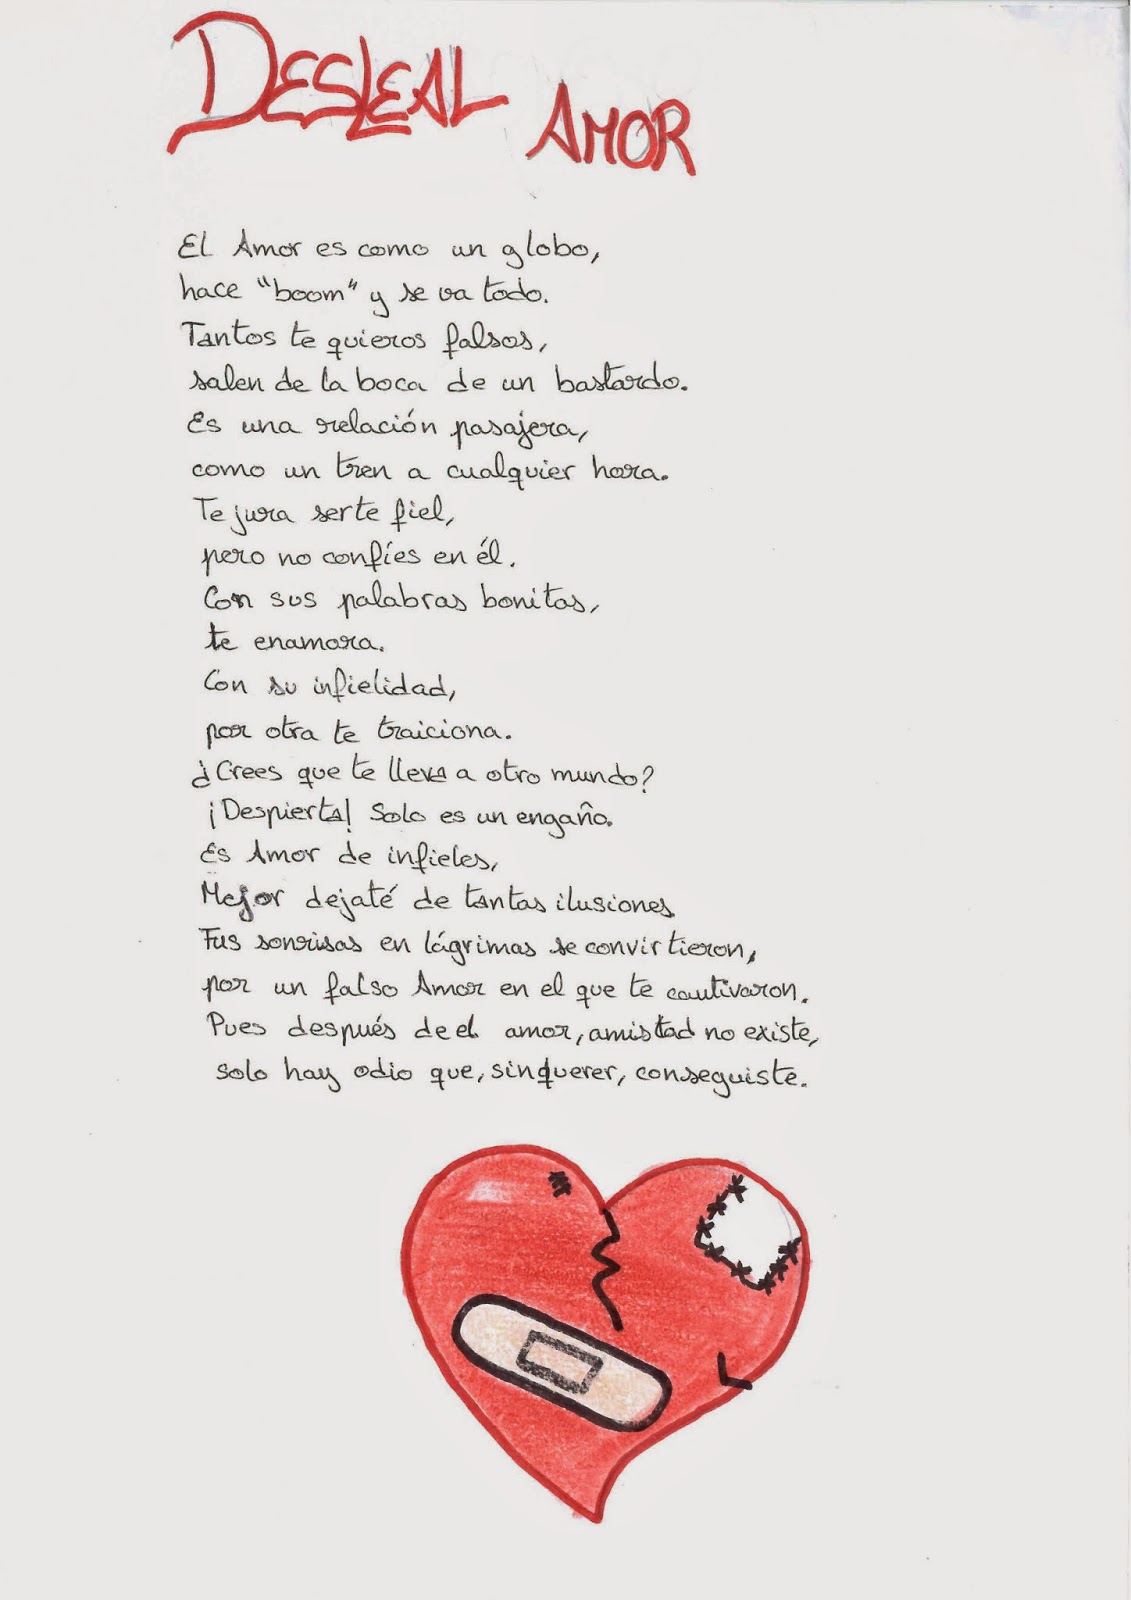 DESLEAL AMOR
El Amor es como un globo,
hace "boom" y se va todo.
Tantos te quieros falsos,
salen de la boca de un bastardo.
Es una relación pasajera,
como un tren a cualquier hora.
Te jura serte fiel,
pero no confíes en él.
Con sus palabras bonitas,
te enamora.
Con su infielidad,
por otra te traiciona.
¿Crees que te lleva a otro mundo?
¡Despierta! Solo es un engaño.
Es Amor de infieles,
Mejor dejaté de tantas ilusiones
Tus sonrisas en lágrimas se convirtieron,
por un falso Amor en el que te cautivaron.
Pues después de el amor, amistad no existe,
solo hay odio que, sin querer, conseguiste.